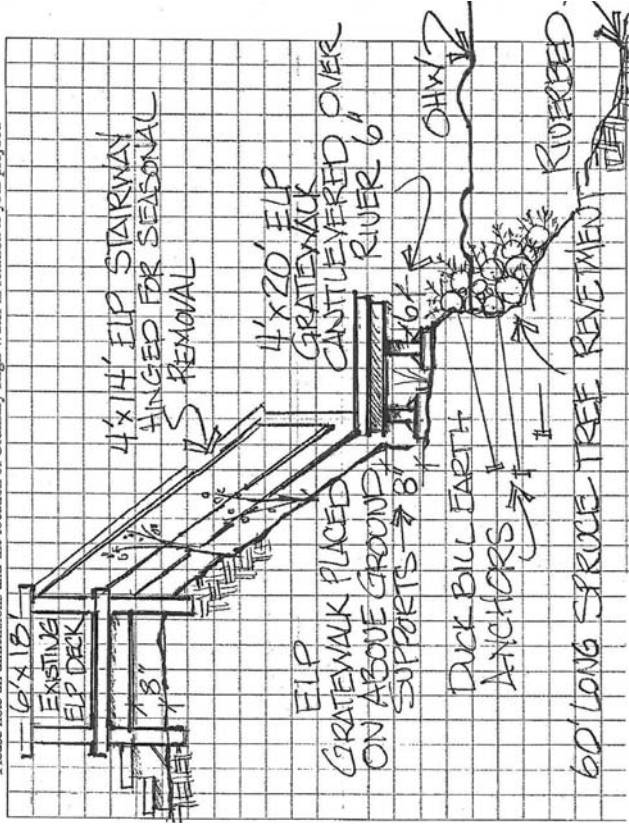 6' X 18'
EXISTING
ELP DECK
8"
4' X 14' ELP STAIRWAY
HINGED FOR SEASONAL
REMOVAL
4' X 20' ELP
GRATEWALK
CANTILEVERED OVER
RIVER 6"
ELP
GRATEWALK PLACED
ON ABOVE GROUND
SUPPORTS → 8"
6"
OHW
DUCK BILL EARTH
ANCHORS
RIVERBED
60' LONG SPRUCE TREE REVETMENT